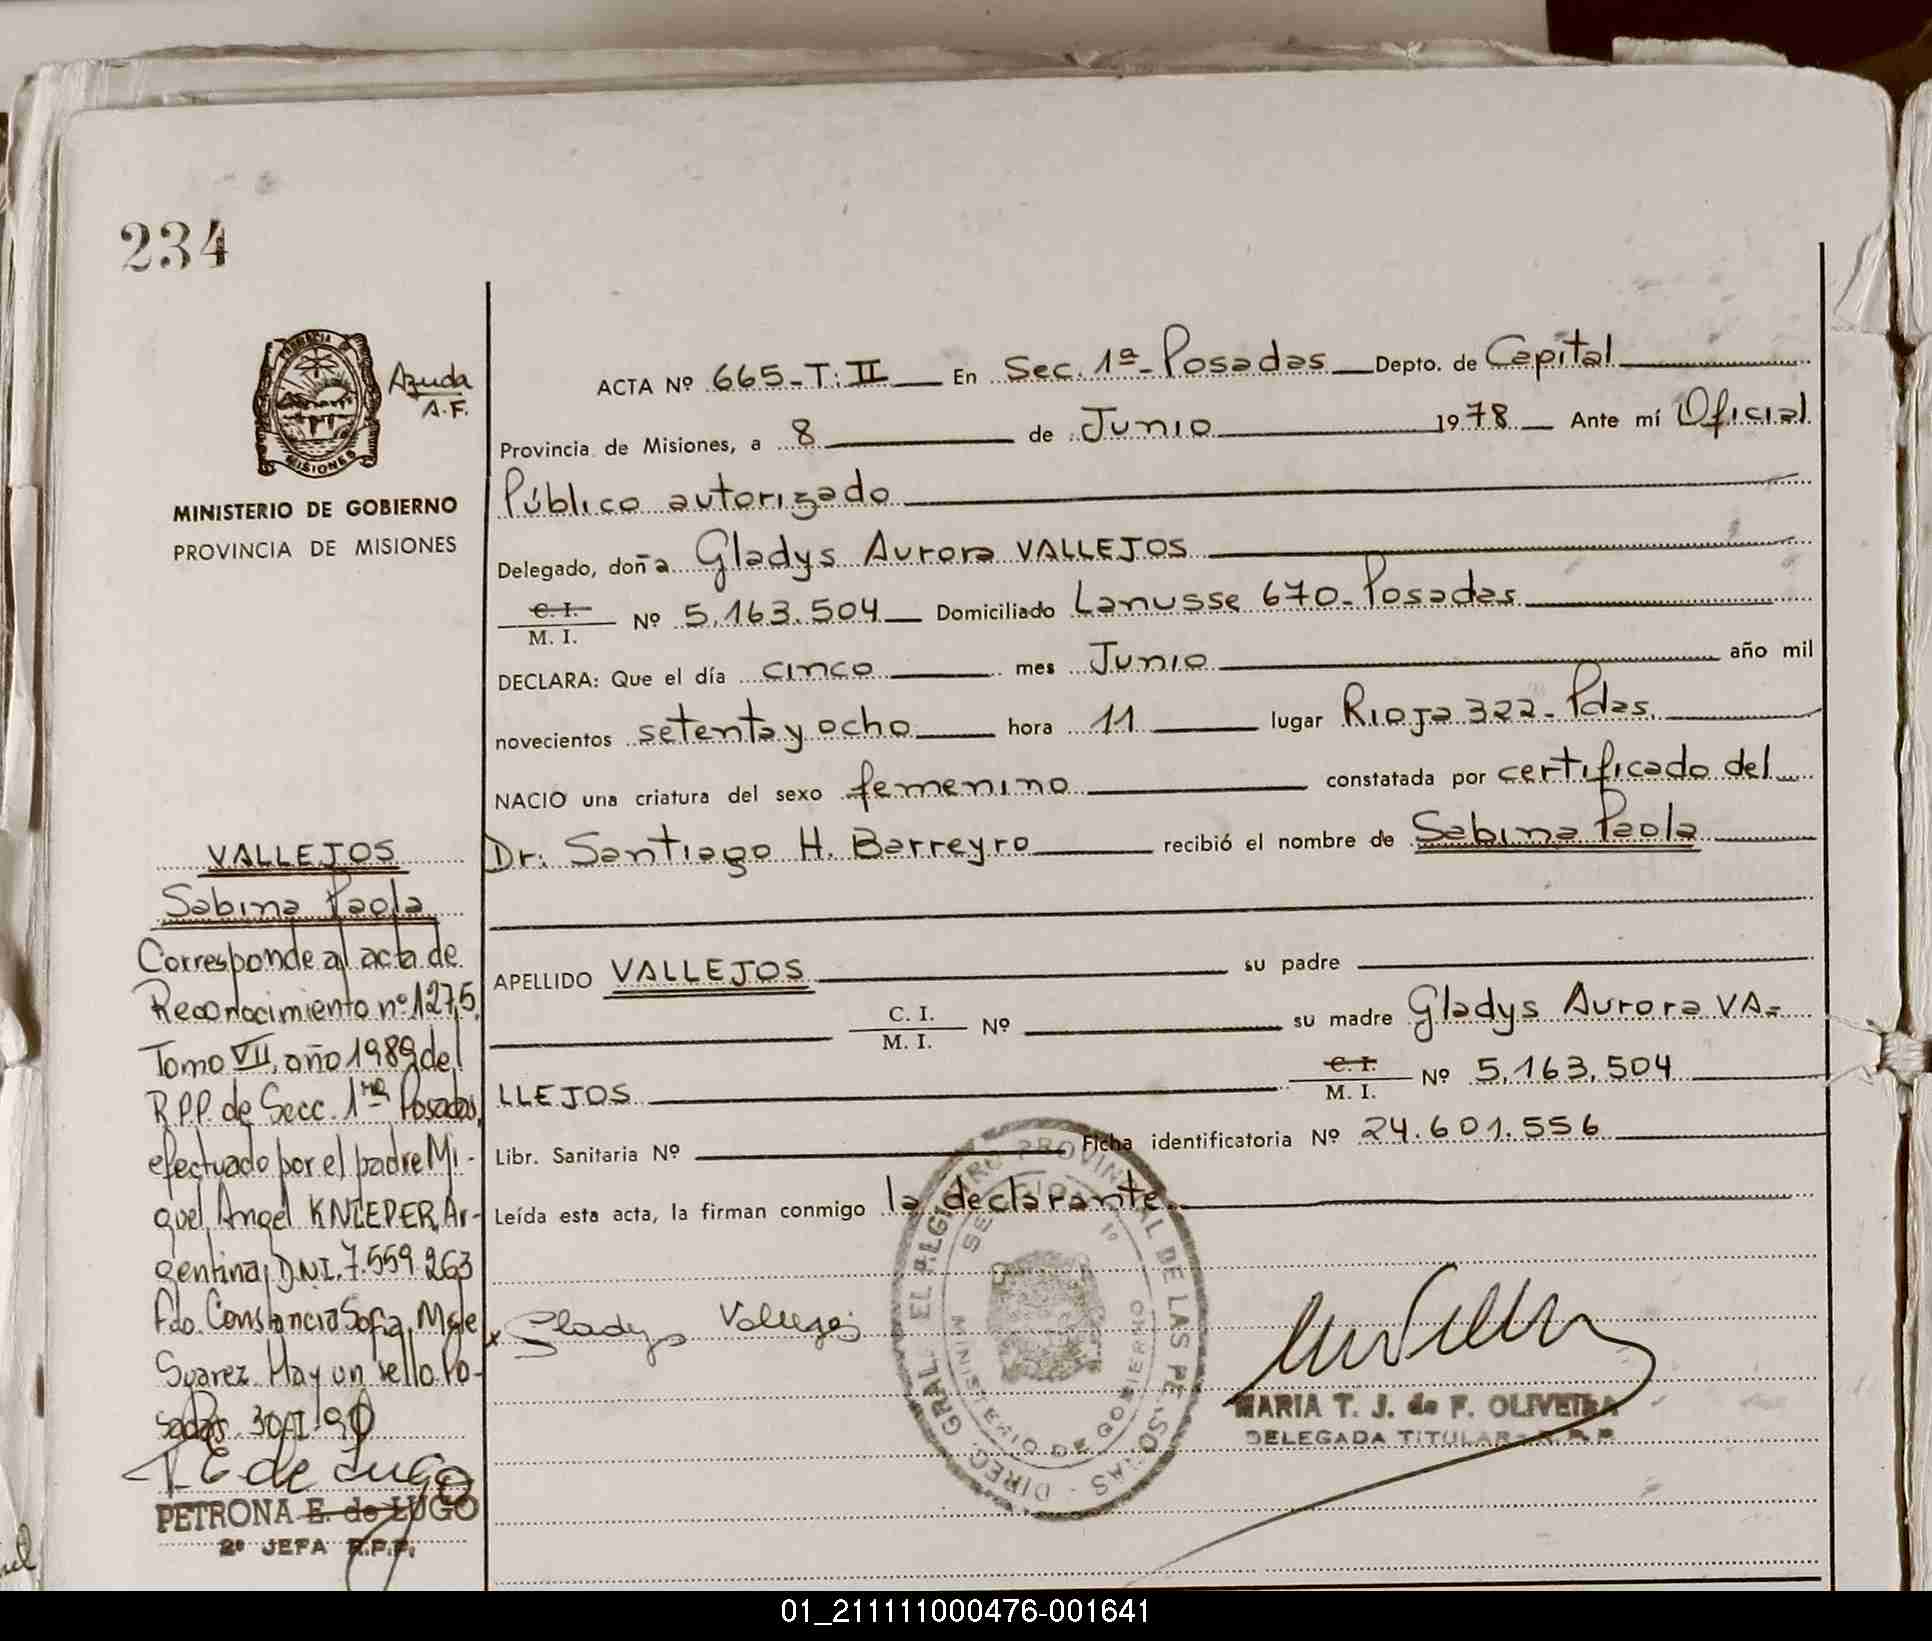 234
PROVINCIA
MISIONES
Azuda
A.F.
MINISTERIO DE GOBIERNO
PROVINCIA DE MISIONES
ACTA Nº 665-T: II En Sec. 1ª - Posadas Depto. de Capital
Provincia de Misiones, a 8 de Junio 1978 Ante mí Oficial
Público autorizado
Delegado, doña Gladys Aurora VALLEJOS
C. I.
M. I. Nº 5.163.504 Domiciliado Lanusse 670- Posadas
DECLARA: Que el día cinco mes Junio año mil
novecientos setenta y ocho hora 11 lugar Rioja 322- Pdas.
NACIO una criatura del sexo femenino constatada por certificado del
Dr: Santiago H. Barreyro recibió el nombre de Sabina Paola
APELLIDO VALLEJOS su padre
C. I.
M. I. Nº su madre Gladys Aurora VA-
LLEJOS C. I.
M. I. Nº 5.163.504
Libr. Sanitaria Nº Ficha identificatoria Nº 24.601.556
Leída esta acta, la firman conmigo la declarante
x Gladys Vallejos
MARIA T. J. de F. OLIVEIRA
DELEGADA TITULAR - R.P.P.
DIREC. GRAL. EL REGISTRO PROVINCIAL DE LAS PERSONAS
MINISTERIO DE GOBIERNO
VALLEJOS
Sabina Paola
Corresponde al acta de
Reconocimiento nº 1275,
Tomo VII, año 1989 del
R.P.P. de Secc. 1ra Posadas,
efectuado por el padre Mi-
guel Angel KNIEPER, Ar-
gentina, D.N.I. 7.559.263
Fdo. Constancia Sofia M. de
Suarez. Hay un sello. Po-
sadas. 30-I-90
P. E de Lugo
PETRONA E. de LUGO
2º JEFA R.P.P.
01_211111000476-001641